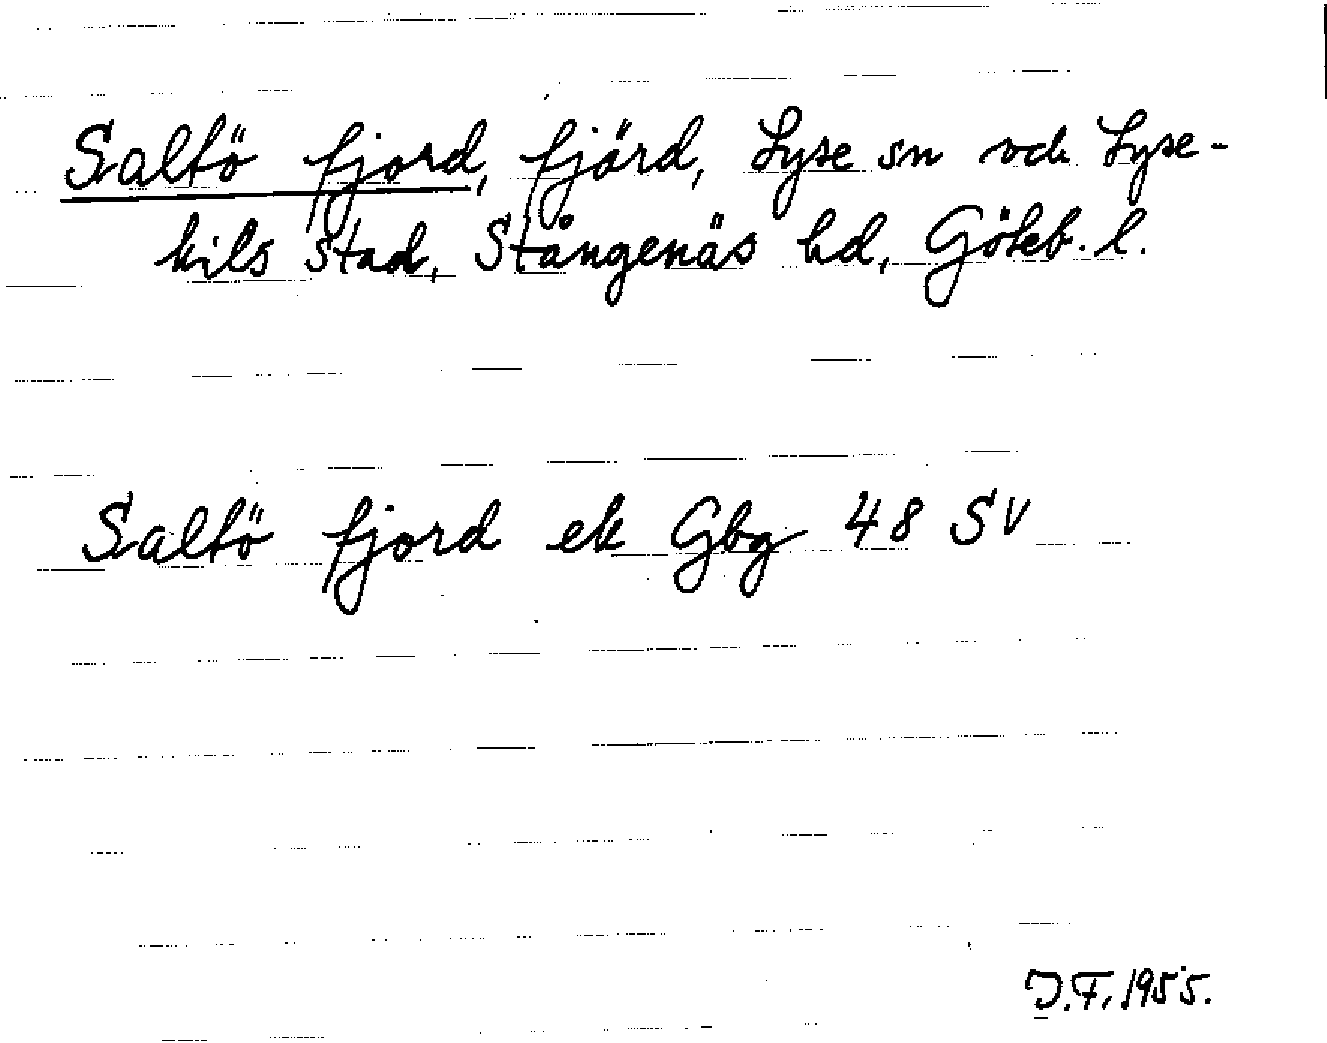 Saltö fjord, fjärd, Lyse sn och Lyse-
kils stad, Stångenäs hd, Göteb. l.
Saltö fjord ek Gbg 48 SV
J.F. 1955.